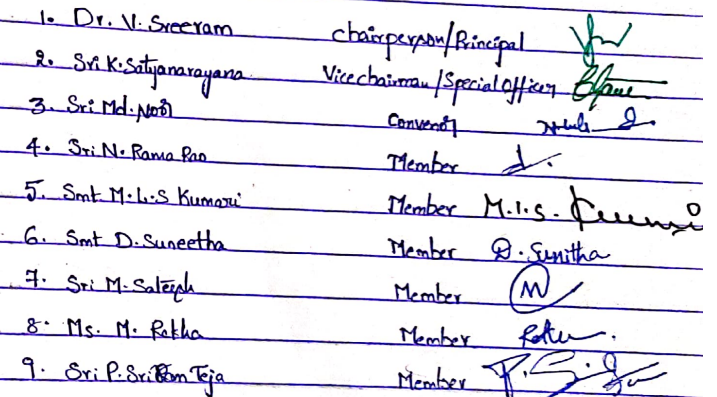 1. Dr. V. Sreeram Chairperson/Principal
2. Sri K. Satyanarayana Vice chairman/Special Officer
3. Sri Md. Noor Convenor
4. Sri N. Rama Rao Member
5. Smt M.L.S Kumari Member M.l.s. Kumari
6. Smt D. Suneetha Member D. Sunitha
7. Sri M. Sateesh Member M
8. Ms. M. Rekha Member
9. Sri P. Sri Ram Teja Member